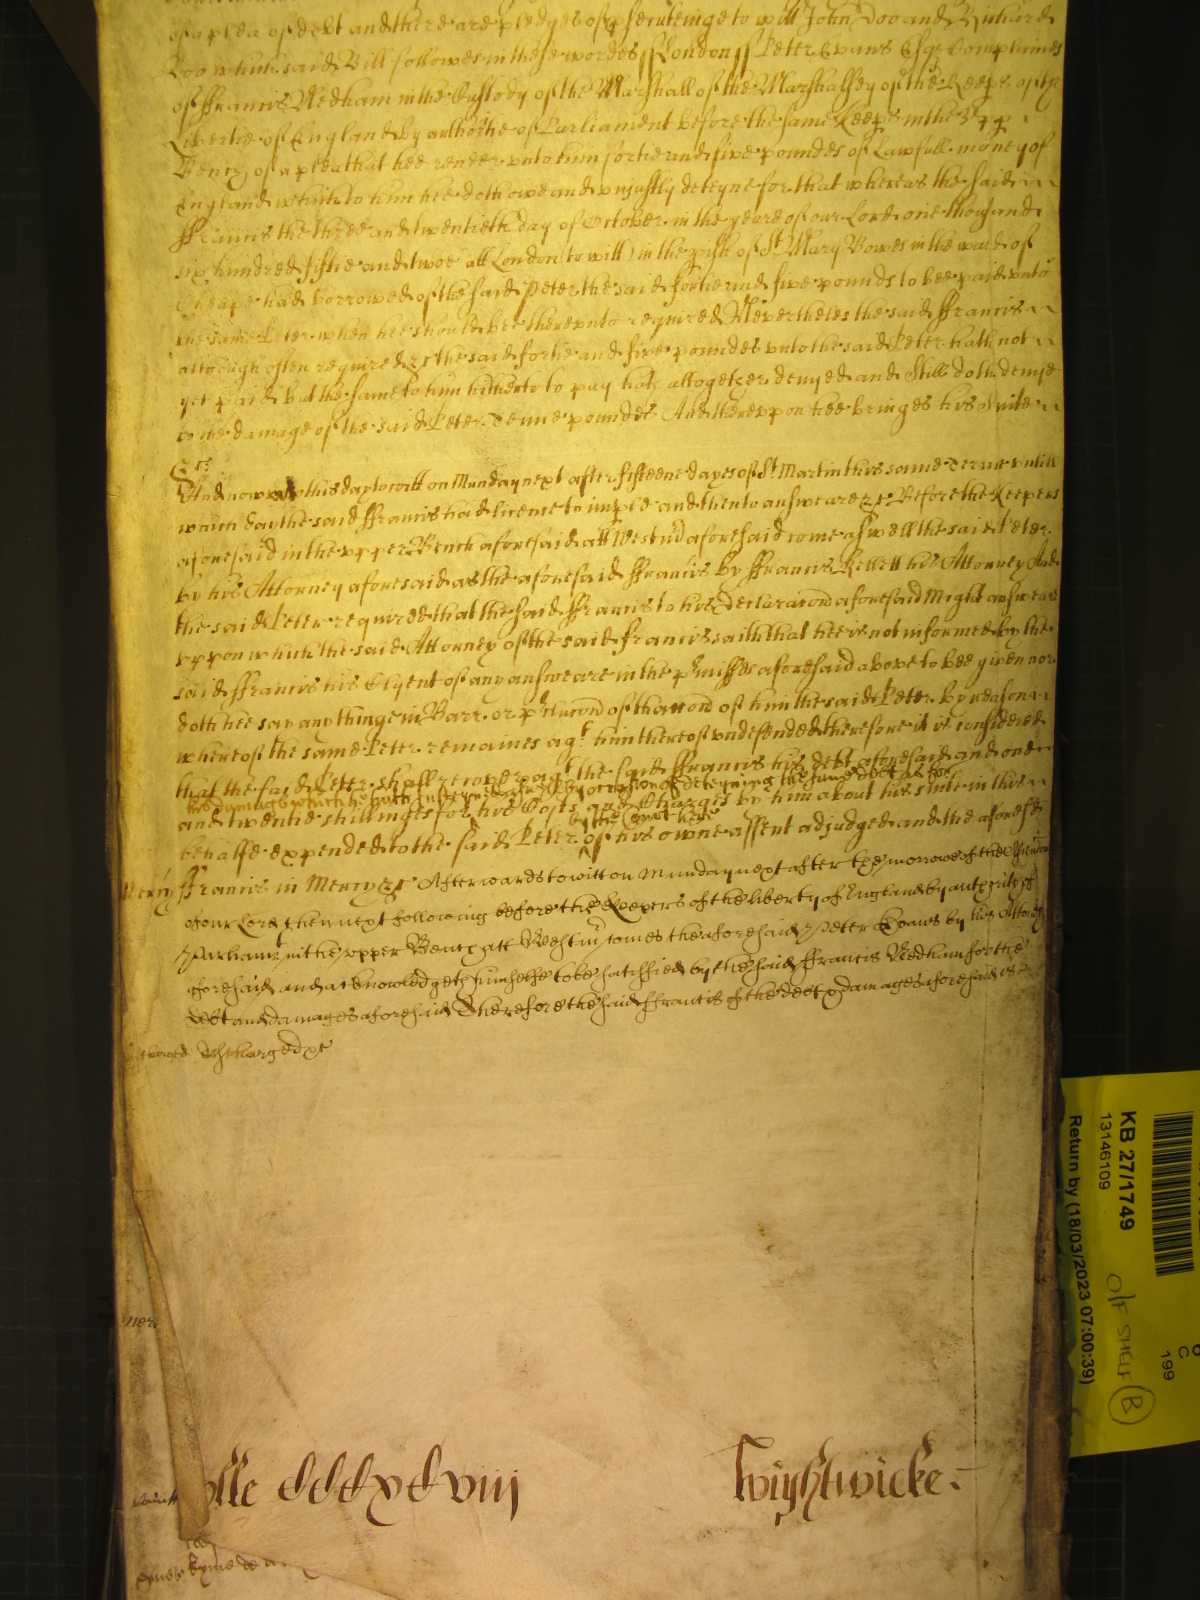 of a plea of debt and there are pledges of psecuteinge to witt John Doo and Richard
Roo which said Bill followes in these wordes ss London ss Peter Evans Esqr Complaines
of ffrancis Nedham in the Custody of the Marshall of the Marshallsey of the Keeps of the
Libertie of England by authoritie of Parliament before the same Keeps in the Vpp
Bench of a plea that hee render vnto him fortie and five poundes of Lawfull money of
England which to him hee doth owe and vnjustly deteyne for that whereas the said
ffrancis the three and twentieth day of October in the yeare of our Lord one thousand
six hundred fiftie and twoe att London (to witt) in the pish of St Mary Bowes in the ward of
Cheape had borrowed of the said Peter the said fortie and five pounds to bee paid vnto
the same Peter when hee should bee therevnto required Neverthelesse the said ffrancis
although often required &c the said fortie and five poundes vnto the said Peter hath not
yet paid but the same to him hitherto to pay hath altogether denyed and still doth denye
to the damage of the said Peter Tenne poundes And therevppon hee bringes his suite
&c
And now att this day to witt on Munday next after fifteene dayes of St Martin this same Terme vntill
which day the said ffrancis had licence to imple and then to answeare &c Before the Keepers
aforesaid in the vpper Bench aforesaid att Westm aforesaid come aswell the said Peter
by his Attorney aforesaid as the aforesaid ffrancis by ffrancis Kellett his Attorney And
the said Peter required that the said ffrancis to his Declaracond aforesaid might answeare
vppon which the said Attorney of the said francis saith that hee is not informed by the
said ffrancis his Clyent of any answeare in the pmisses aforesaid above to bee given nor
doth hee say any thinge in Barr or pclucond of thaccond of him the said Peter by reason
whereof the same Peter remaines agt him thereof vndefended therefore it is considered
that the said Peter shall recover agt the said ffrancis his debt aforesaid and one
his damages which he hath susteined aswell by occasion of deteyning the same debt as for
and twentie shillinges for his Costs and Charges by him about his suite in this
by the Court here
behalfe expended to the said Peter of his owne assent adjudged and the aforesd
Mercy ffrancis in Mercy &c Afterwards to witt on Munday next after the morrow of the Ascension
of our Lord then next following before the Keepers of the liberty of England by authority of
Parliamt in the vpper Bench att Westm comes the aforesaid Peter Evans by his Attorney
aforesaid and acknowledgeth himselfe to be satisfied by the said ffrancis Nedham for the
Debt and damages aforesaid Therefore the said ffrancis of the debt & damages aforesaid is
discharged &c
mer
olle CCCxCviij
Wightwicke